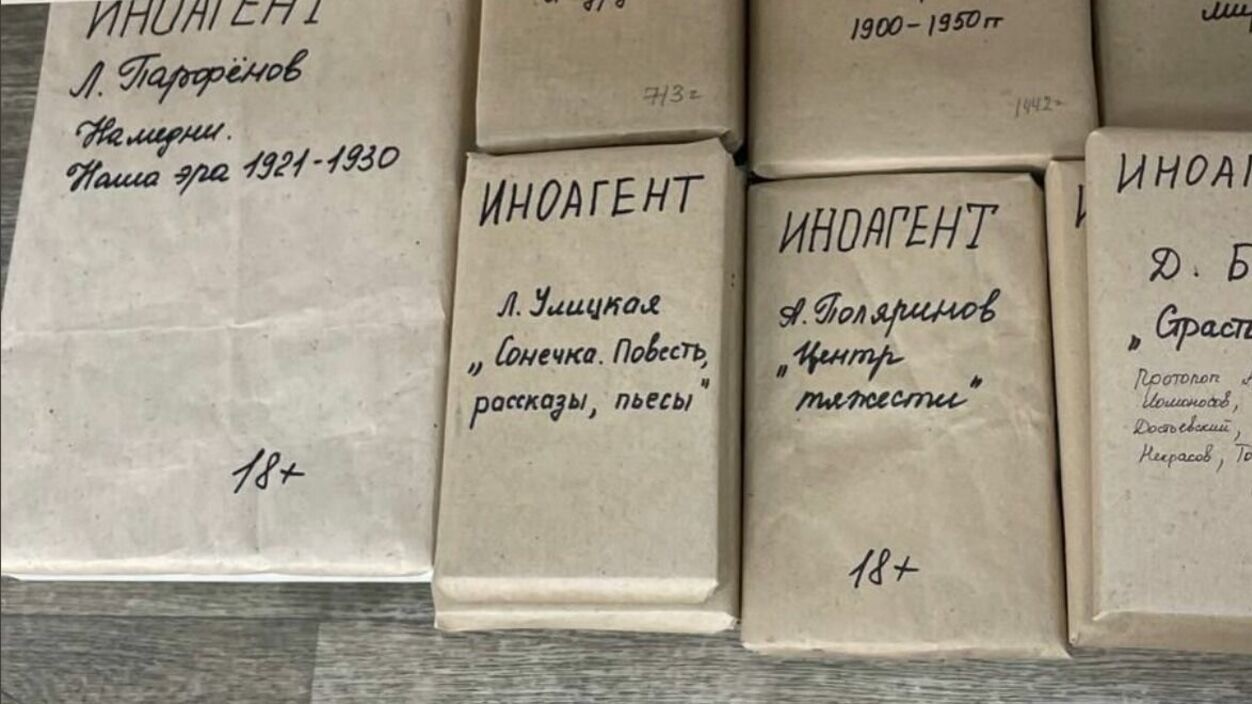 ИНОАГЕНТ
Л. Парфёнов
Намедни.
Наша эра 1921-1930
18+
713г
1900-1950 гг
1442г
ИНОАГЕНТ
Л. Улицкая
„Сонечка. Повесть,
рассказы, пьесы"
ИНОАГЕНТ
А. Поляринов
„Центр
тяжести"
18+
ИНОАГ
Д. Б
„Страст
Протопоп
Ломоносов,
Достоевский,
Некрасов, То